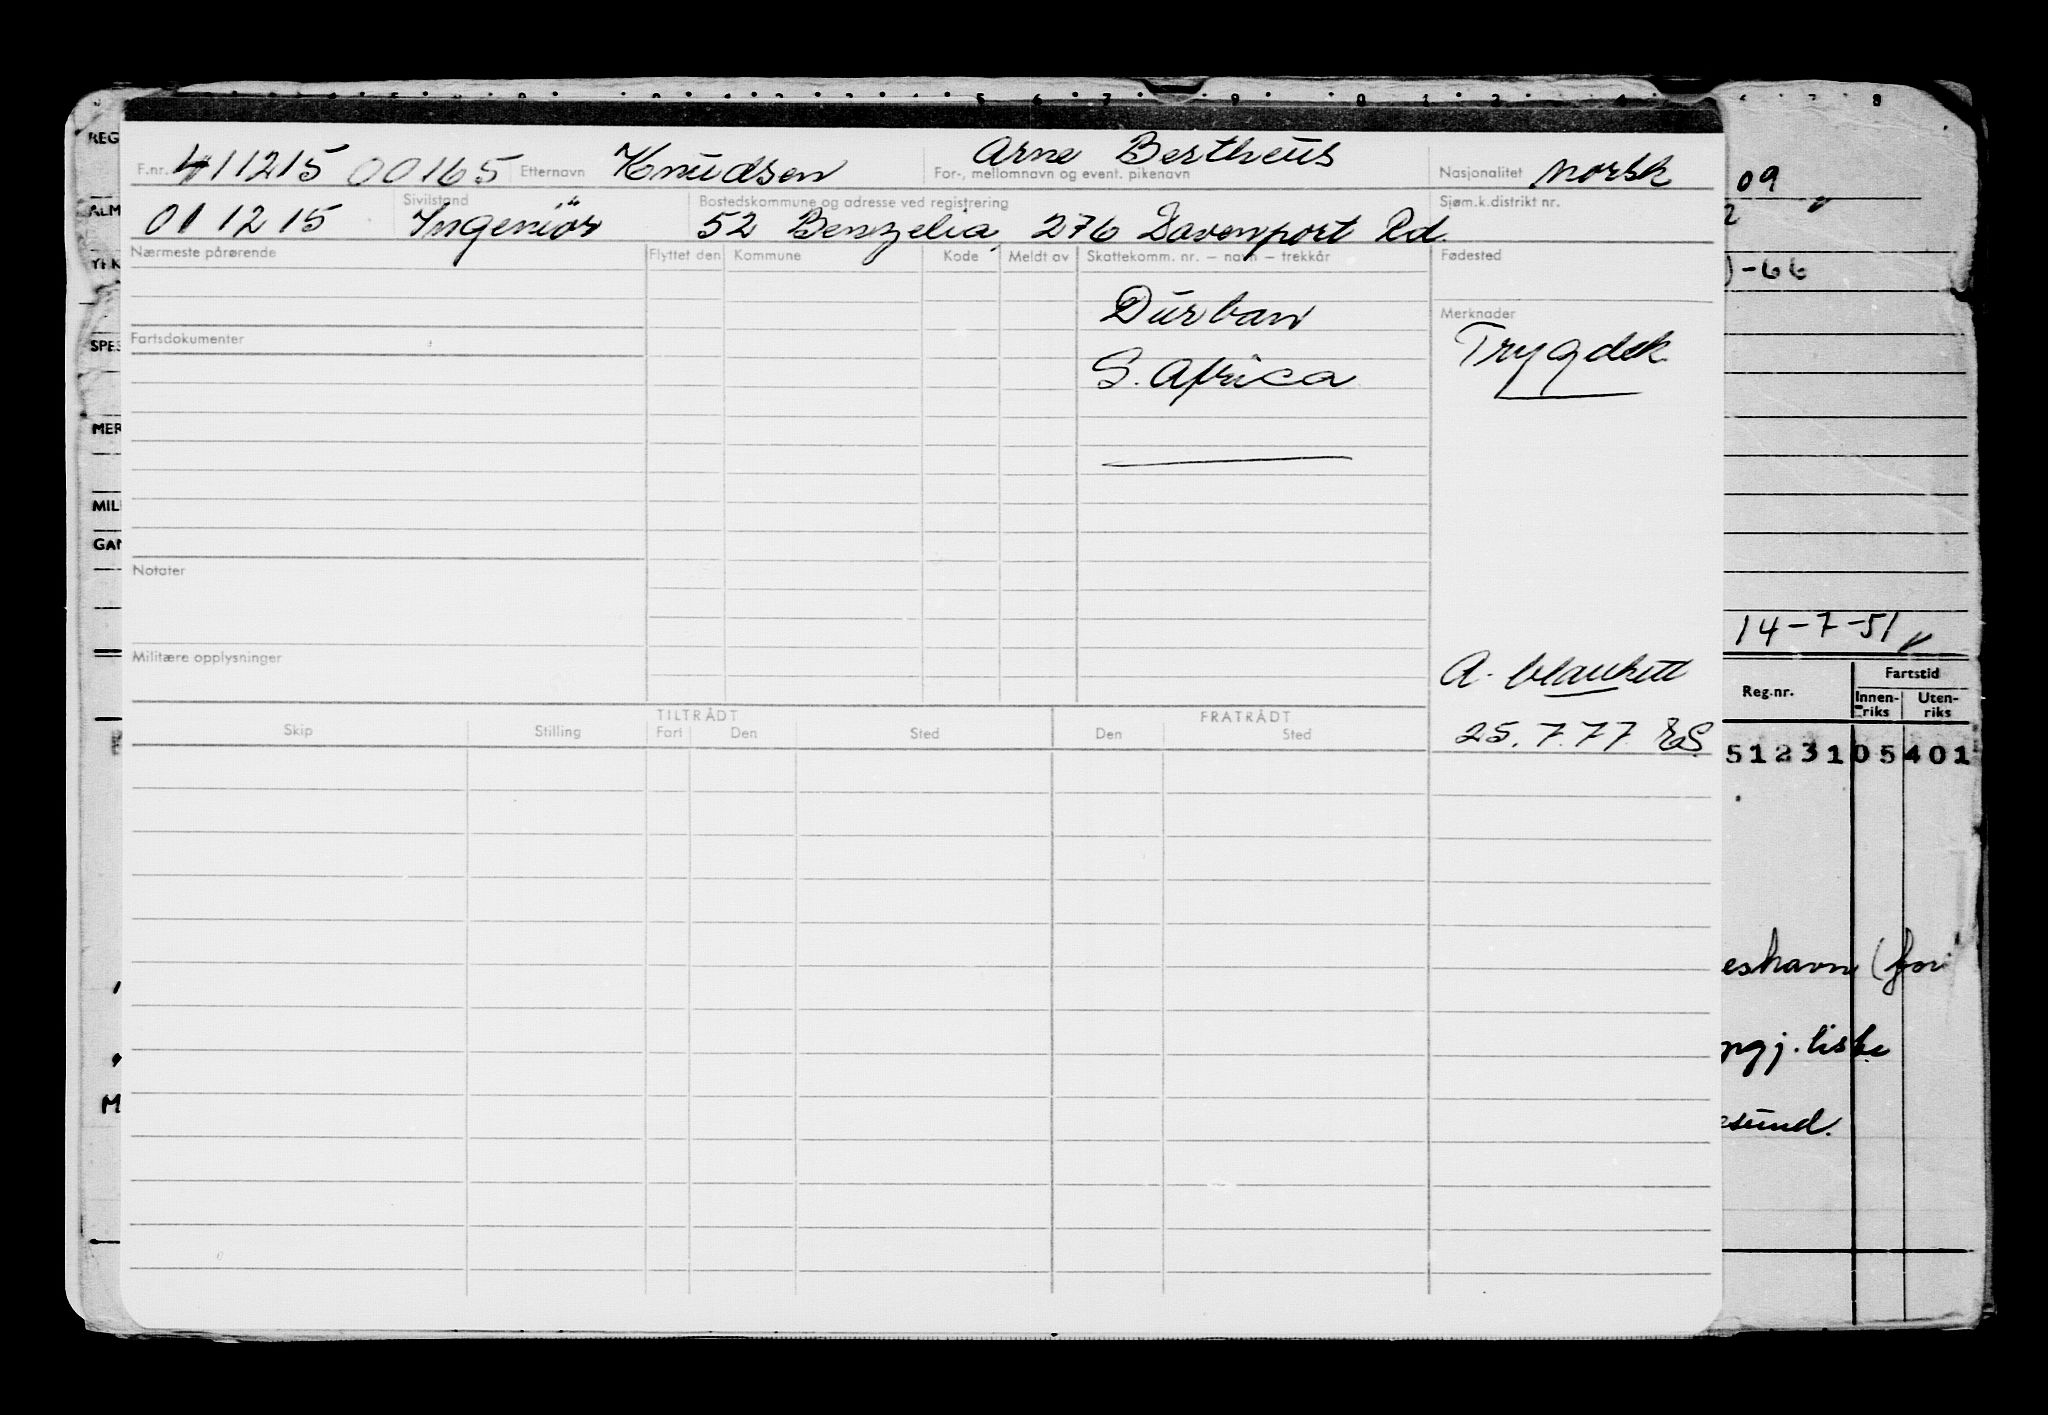 REG
F.nr. 411215 00165 Etternavn Knudsen Arne Bertheus For-, mellomnavn og event. pikenavn Nasjonalitet norsk
09
ALM
01 12 15 Sivilstand Ingeniör Bostedskommune og adresse ved registrering 52 Benzelia, 276 Davenport Rd. Sjøm.k.distrikt nr.
2
YRK
Nærmeste pårørende Flyttet den Kommune Kode Meldt av Skattekomm. nr. – navn – trekkår Fødested
-66
Durban
Merknader
SPES
Fartsdokumenter
Trygdek
S. Africa
MER
MILI
GAN
Notater
14-7-51
Militære opplysninger
A. blankett
Reg.nr. Fartstid
Innen-riks Uten-riks
TILTRÅDT FRATRÅDT
Skip Stilling Fart Den Sted Den Sted
25.7.77 ES
51231 05401
eshavn (for
mgj. liste
M
esund.